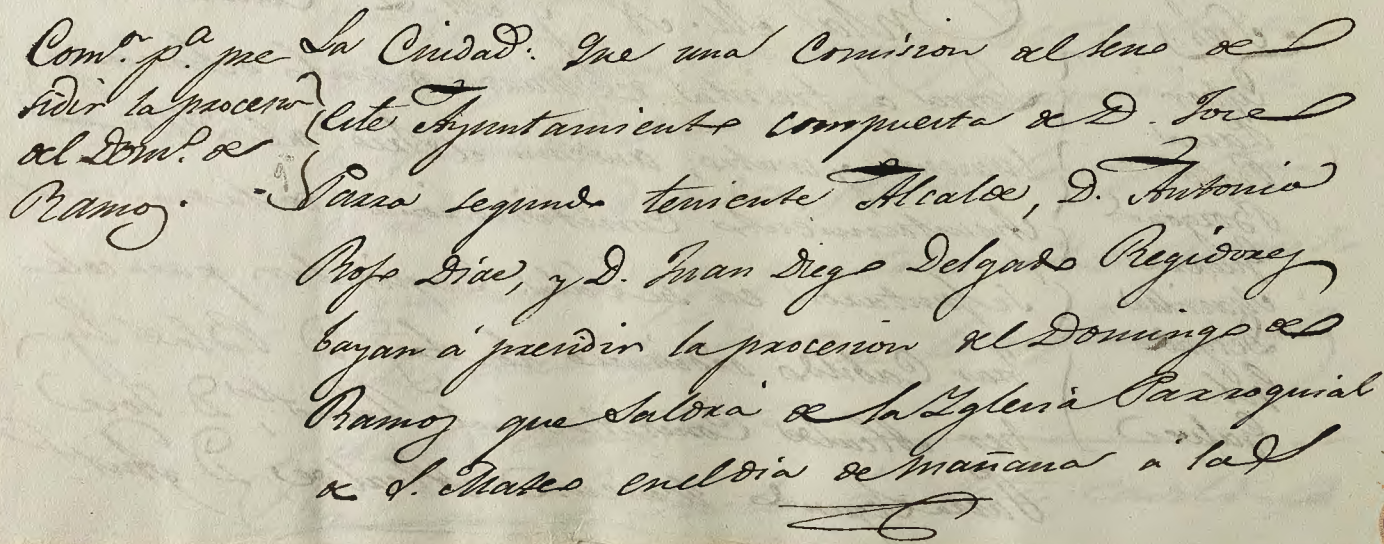 Com.ⁿ p.ª pre
sidir la procesion
del Dom.º de
Ramos.
La Ciudad: Que una Comision del seno de
este Ayuntamiento compuesta de D. Jose
Parra segundo teniente Alcalde, D. Antonio
Rofo Diae, y D. Juan Diego Delgado Regidores
bayan á presidir la procesion del Domingo de
Ramos que saldrá de la Yglesia Parroquial
de S. Mateo enel dia de mañana a las